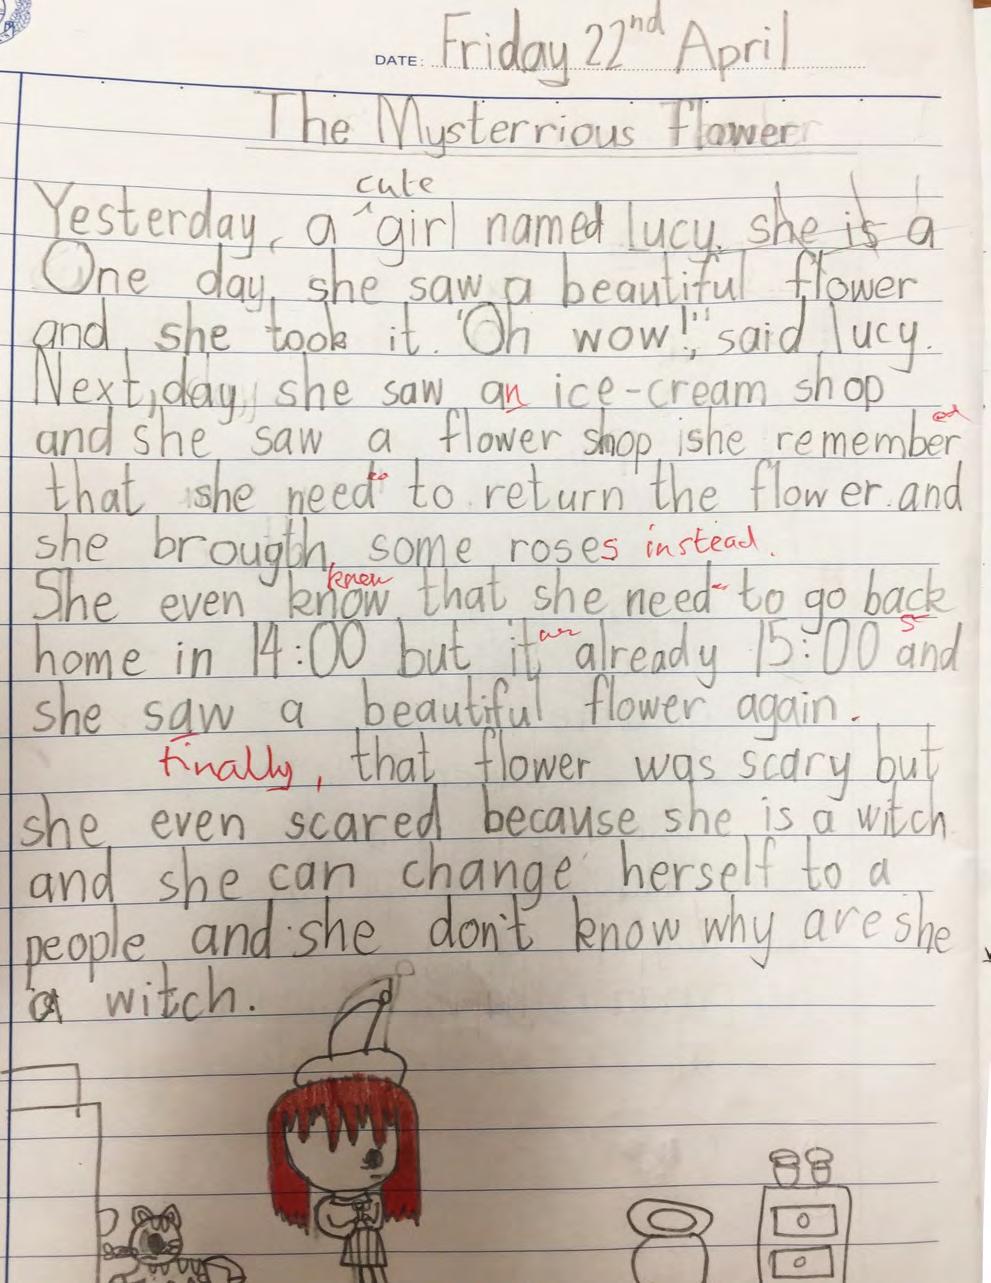 DATE: Friday 22nd April
The Mysterrious flower
cute
Yesterday, a ^girl named lucy. she is a
One day, she saw a beautiful flower
and she took it. "Oh wow!", said lucy.
Next, day, she saw an ice-cream shop
ed
and she saw a flower shop she remember
that she need to to return the flower. and
she brougth some roses instead.
knew
She even know that she need to go back
home in 14:00 but it already 15:00 and
she saw a beautiful flower again.
finally, that flower was scary but
she even scared because she is a witch
and she can change herself to a
people and she don't know why are she
a witch.